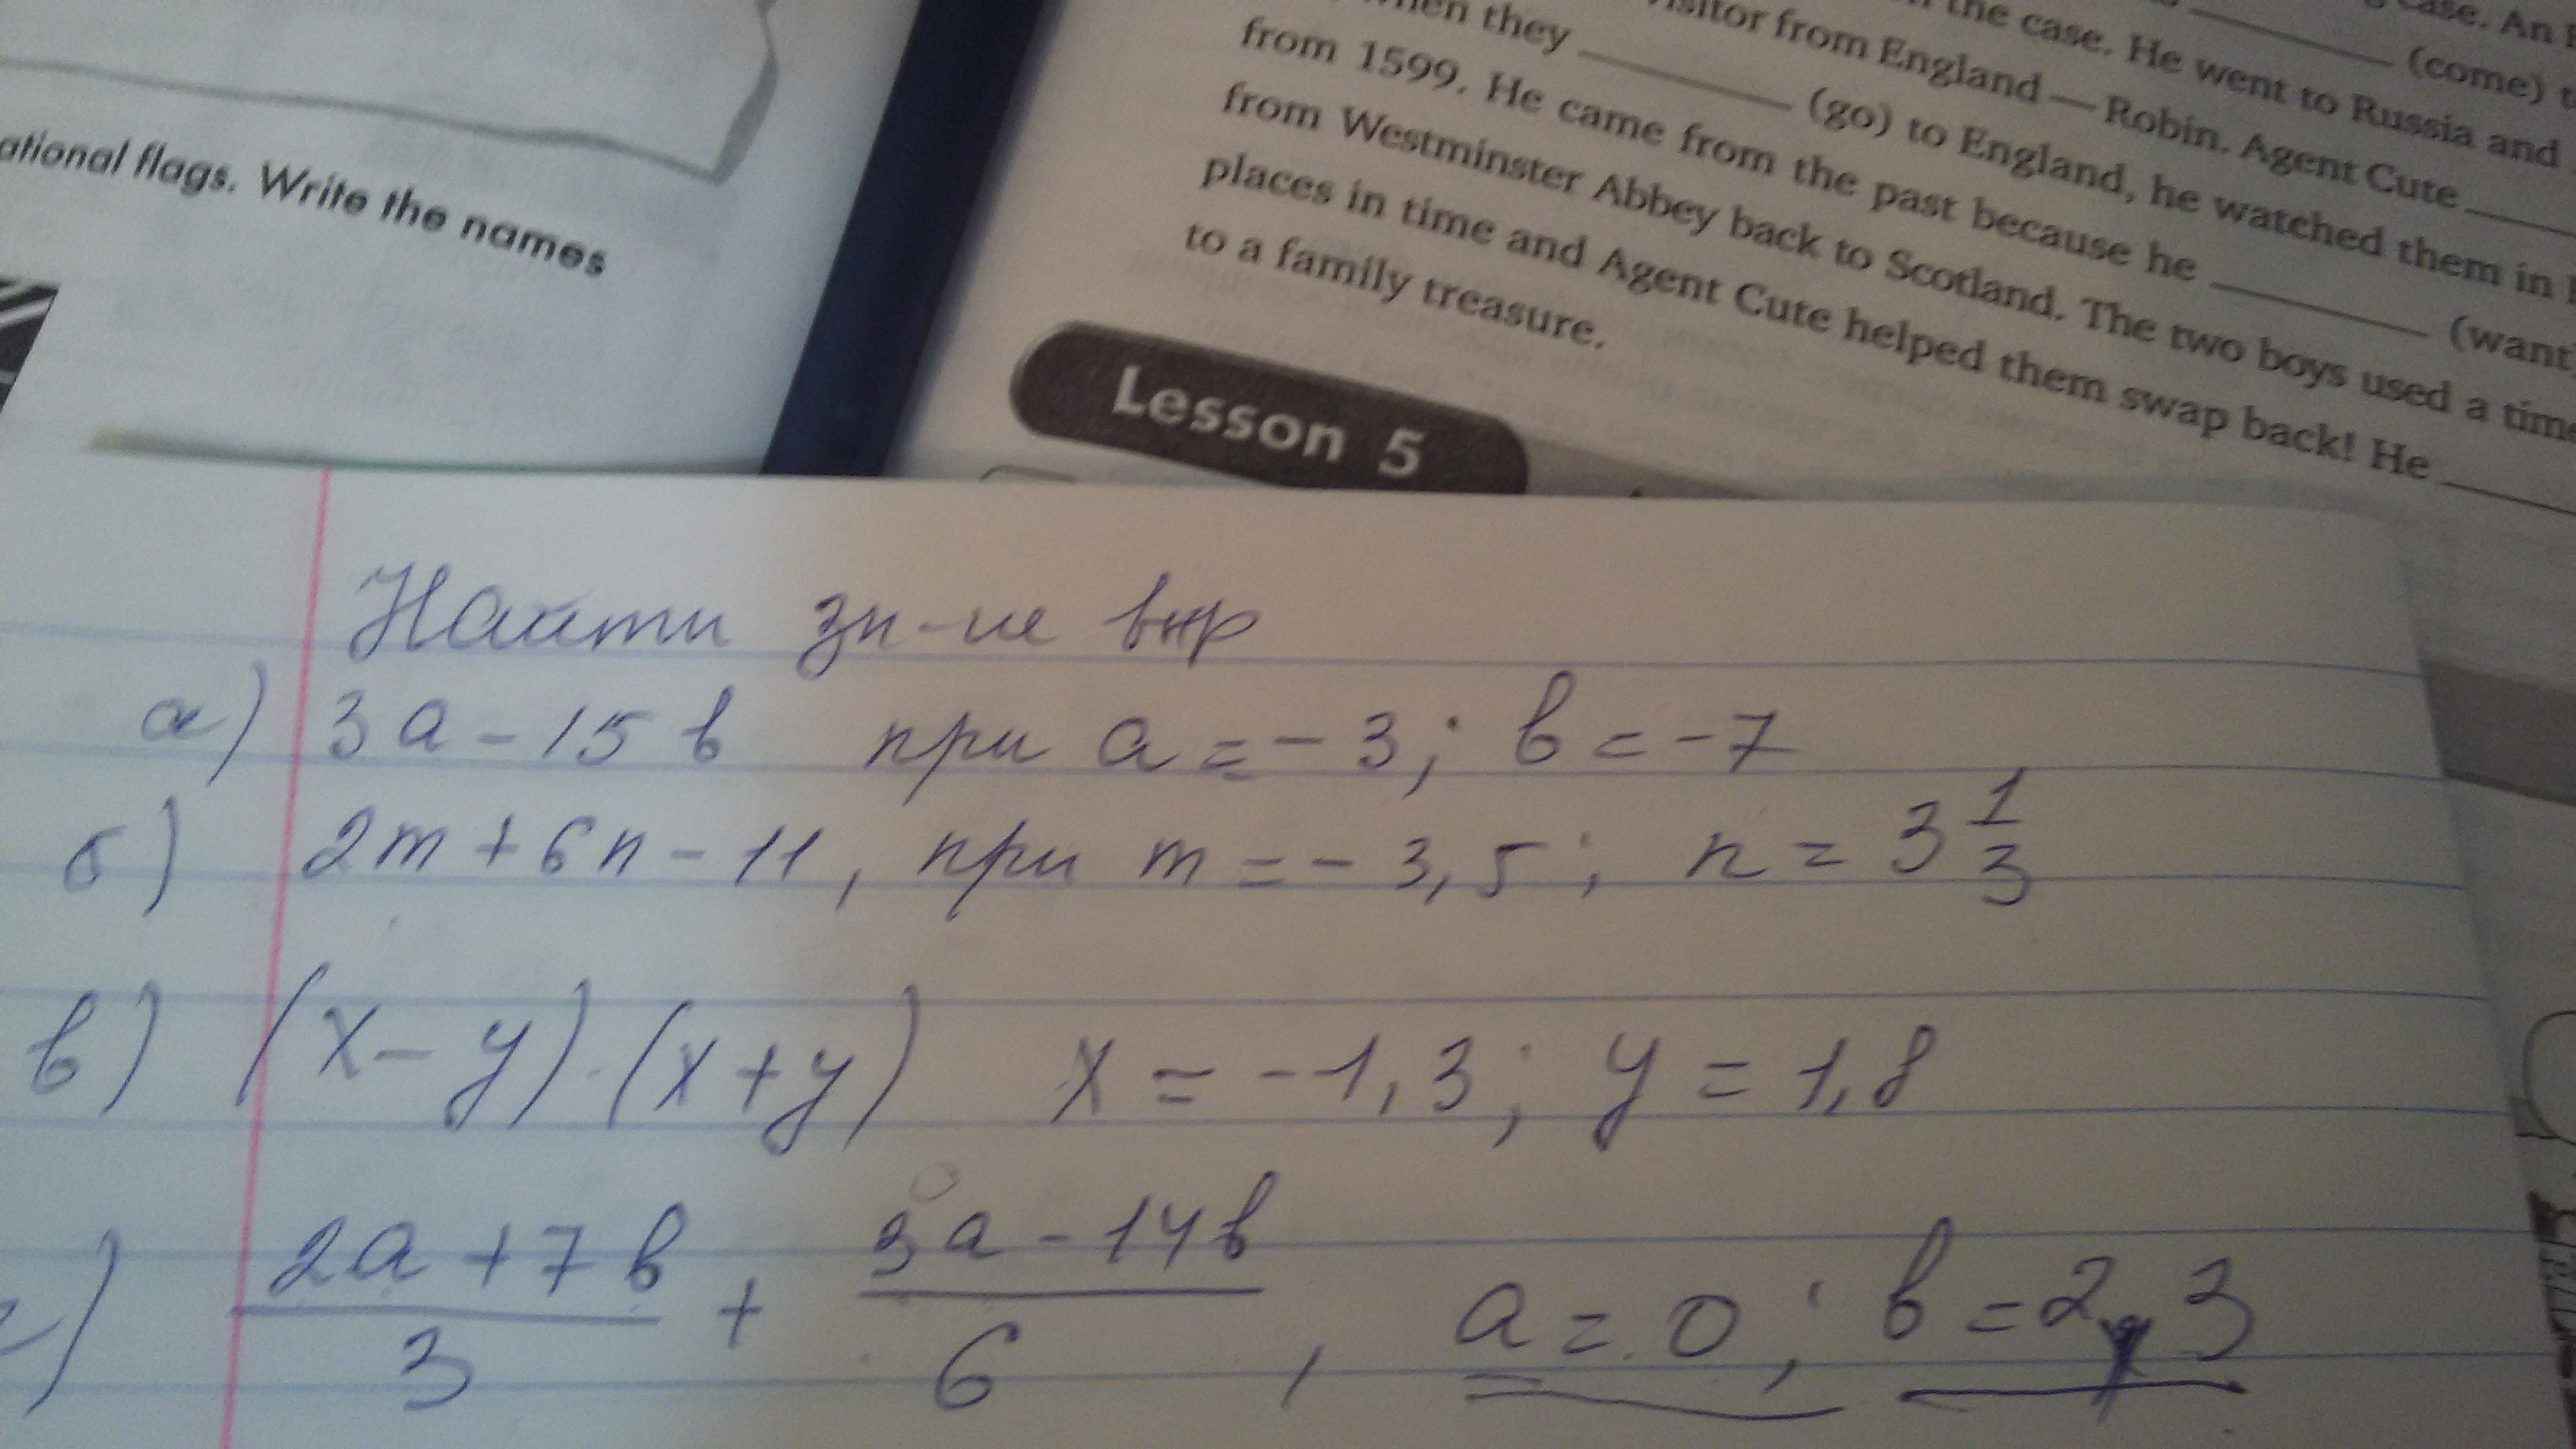 ational flags. Write the names
case. An
the case. He went to Russia and
(come) t
hen they ______ (go) to England, he watched them in
visitor from England — Robin. Agent Cute ______
from 1599. He came from the past because he ______ (want)
from Westminster Abbey back to Scotland. The two boys used a time
places in time and Agent Cute helped them swap back! He ______
to a family treasure.
Lesson 5
Найти зн-ие выр
а) 3a - 15b при a = -3; b = -7
б) 2m + 6n - 11, при m = -3,5; n = 3 1/3
в) (x - y) · (x + y) x = -1,3; y = 1,8
г) (2a + 7b)/3 + (3a - 14b)/6, a = 0; b = 2,3